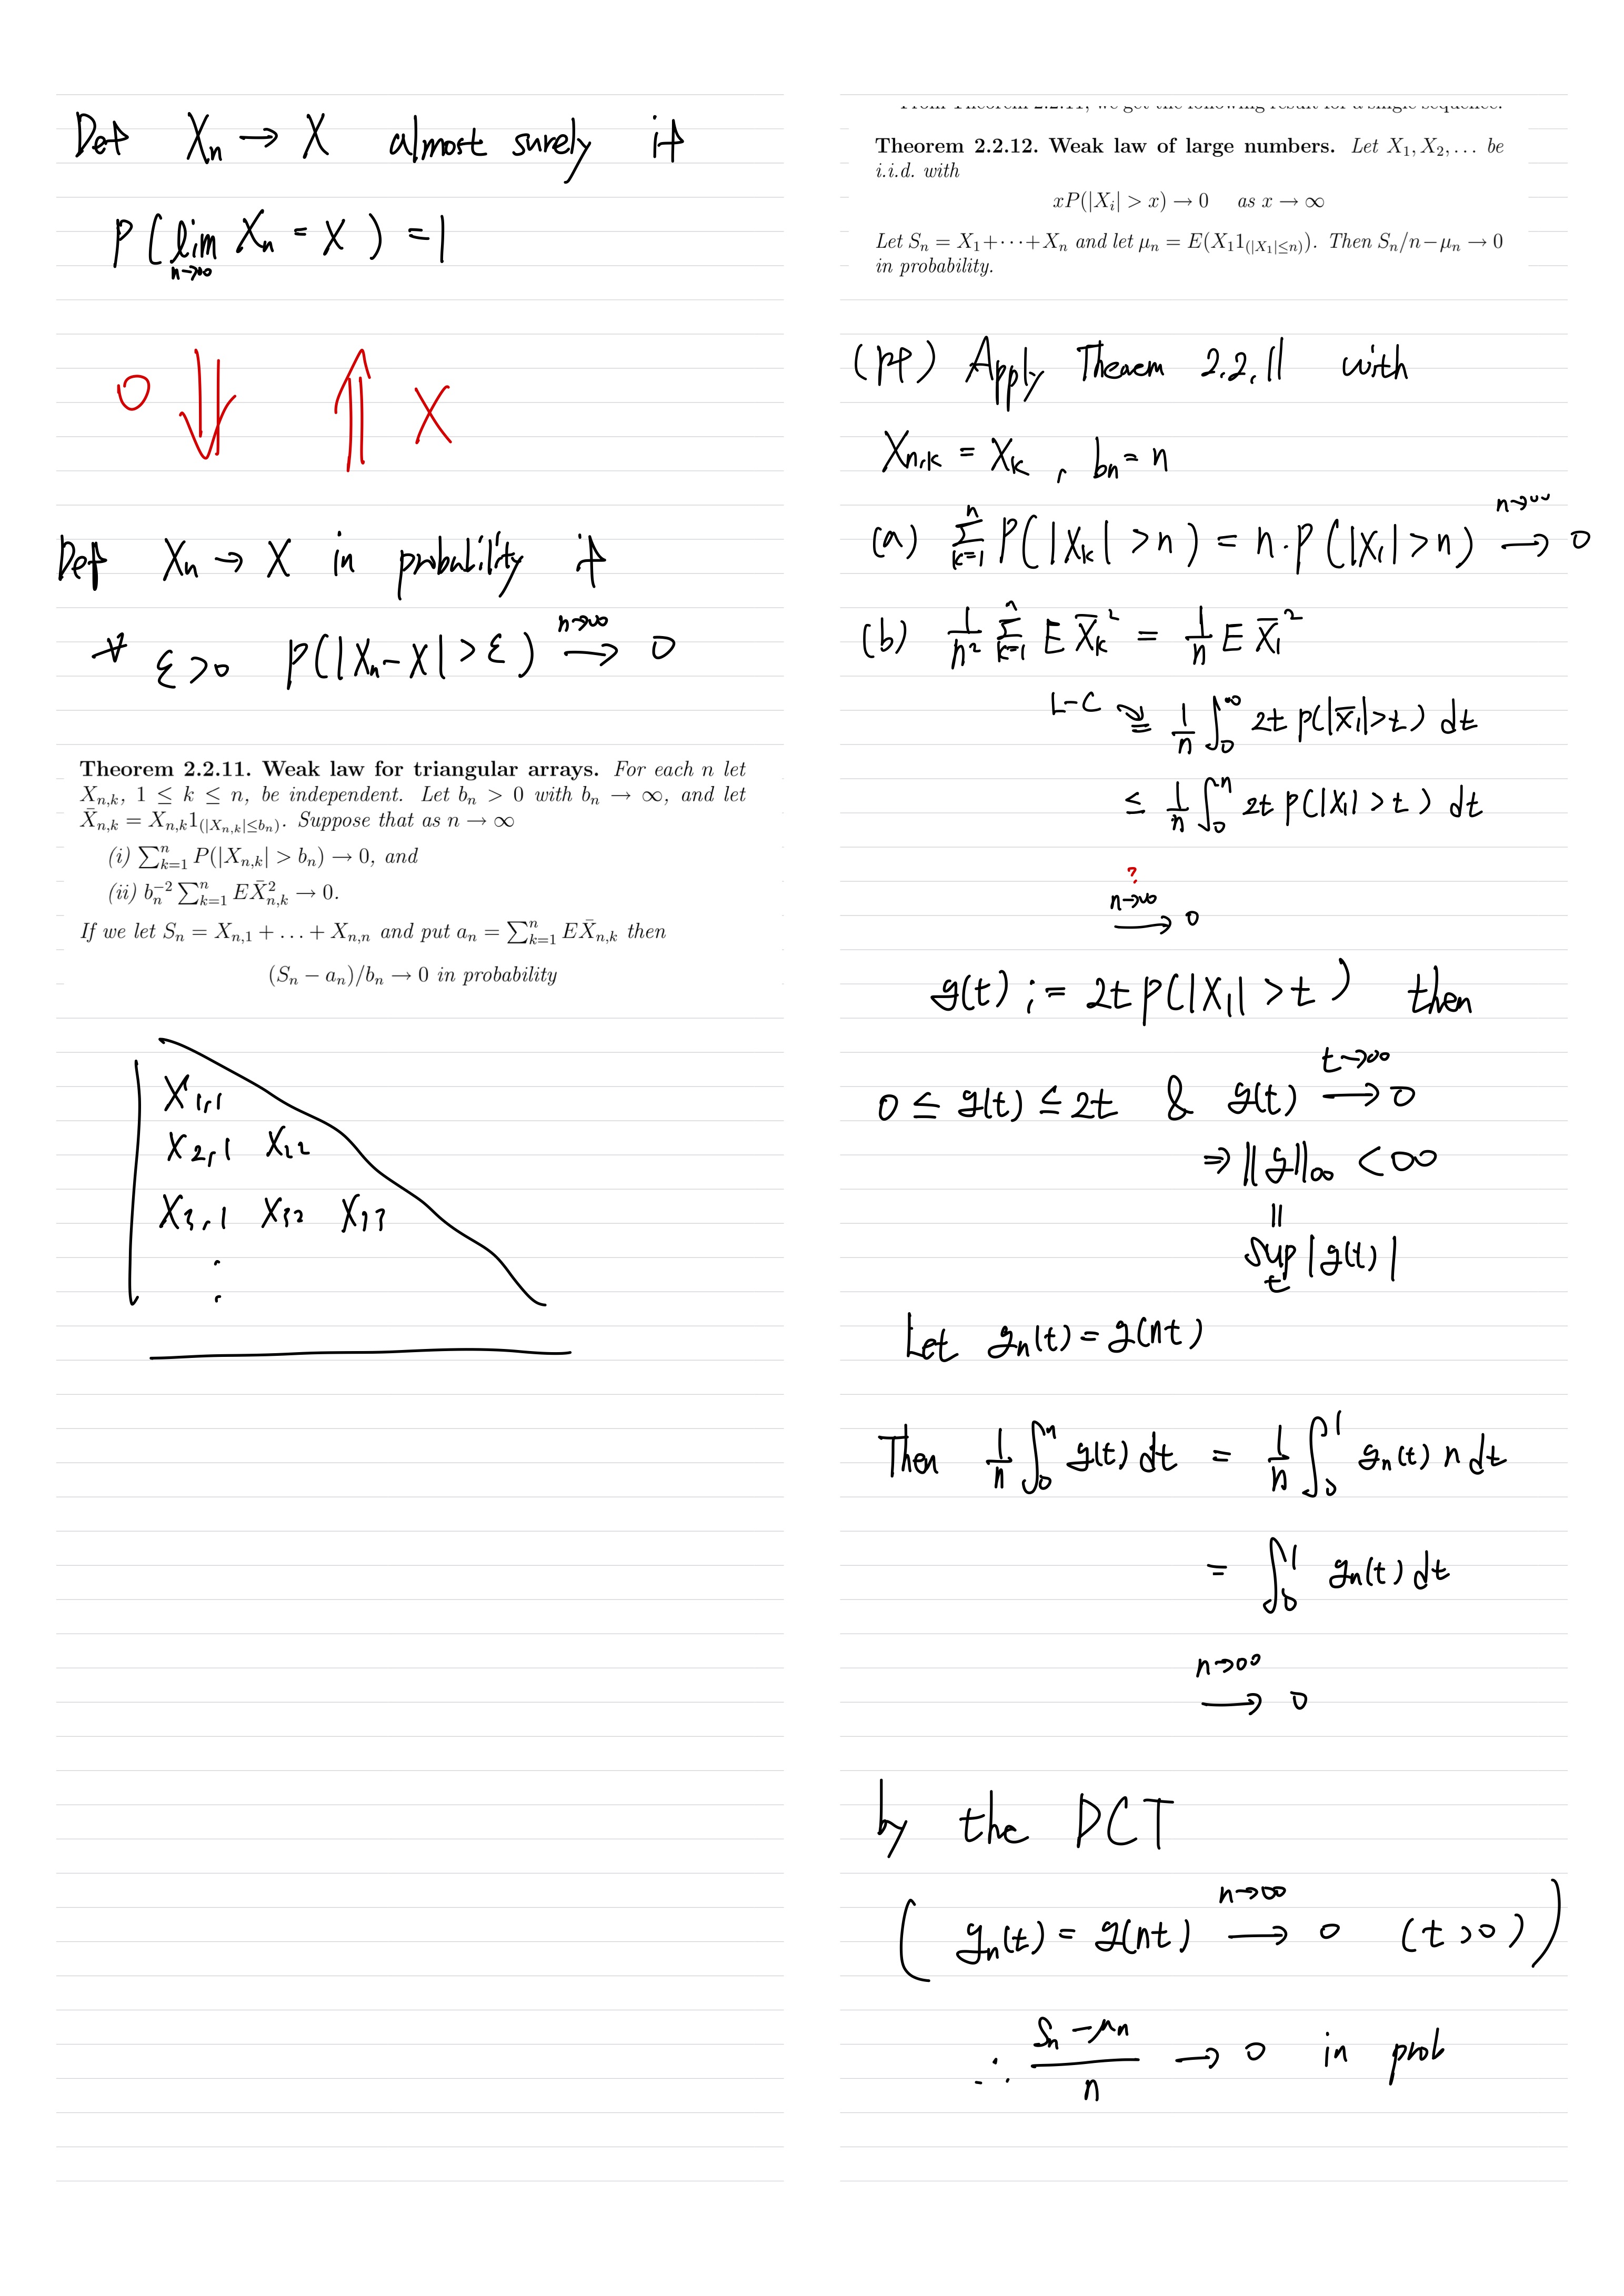 Def Xn → X almost surely if
P( lim n→∞ Xn = X ) = 1
O ⇓ ⇑ X
Def Xn → X in probability if
∀ ε>0 P(|Xn - X| > ε) n→∞ → 0
Theorem 2.2.11. Weak law for triangular arrays. For each n let
X_{n,k}, 1 ≤ k ≤ n, be independent. Let b_n > 0 with b_n → ∞, and let
X̄_{n,k} = X_{n,k}1_{(|X_{n,k}|≤b_n)}. Suppose that as n → ∞
(i) ∑_{k=1}^n P(|X_{n,k}| > b_n) → 0, and
(ii) b_n^{-2} ∑_{k=1}^n EX̄²_{n,k} → 0.
If we let S_n = X_{n,1} + . . . + X_{n,n} and put a_n = ∑_{k=1}^n EX̄_{n,k} then
(S_n − a_n)/b_n → 0 in probability
X1,1
X2,1 X22
X3,1 X32 X33
:
Theorem 2.2.12. Weak law of large numbers. Let X_1, X_2, . . . be
i.i.d. with
xP(|X_i| > x) → 0 as x → ∞
Let S_n = X_1+· · ·+X_n and let μ_n = E(X_1 1_{(|X_1|≤n)}). Then S_n/n−μ_n → 0
in probability.
(pf) Apply Theorem 2.2.11 with
Xn,k = Xk , bn = n
(a) ∑_{k=1}^n P(|Xk| > n) = n·P(|X1| > n) n→∞ → 0
(b) 1/n² ∑_{k=1}^n E X̄k² = 1/n E X̄1²
L-C ↘ = 1/n ∫_0^∞ 2t P(|X̄1| > t) dt
≤ 1/n ∫_0^n 2t P(|X1| > t) dt
?
n→∞ → 0
g(t) := 2t P(|X1| > t) then
0 ≤ g(t) ≤ 2t & g(t) t→∞ → 0
⇒ ||g||∞ < ∞
||
sup t |g(t)|
Let gn(t) = g(nt)
Then 1/n ∫_0^n g(t) dt = 1/n ∫_0^1 gn(t) n dt
= ∫_0^1 gn(t) dt
n→∞ → 0
by the DCT
( gn(t) = g(nt) n→∞ → 0 (t>0) )
∴ (Sn - μn)/n → 0 in prob